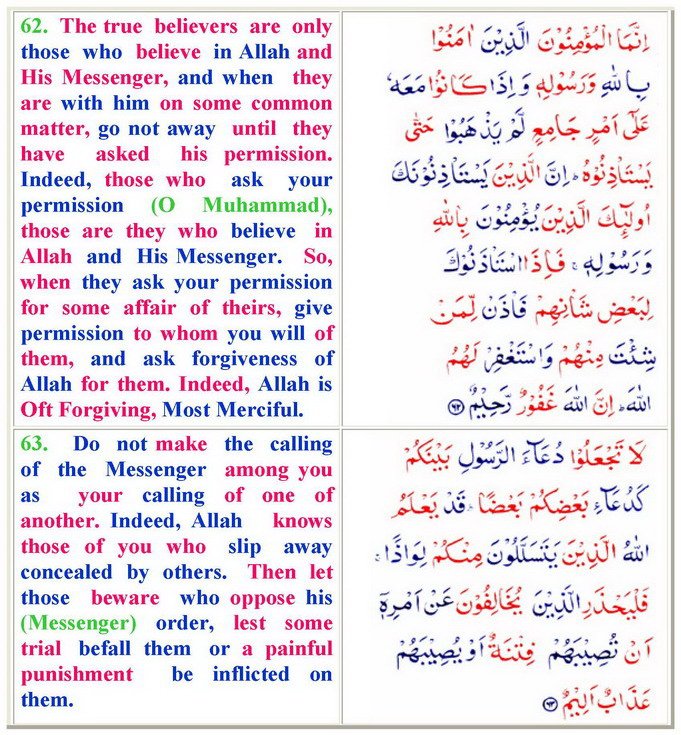 62. The true believers are only
those who believe in Allah and
His Messenger, and when they
are with him on some common
matter, go not away until they
have asked his permission.
Indeed, those who ask your
permission (O Muhammad),
those are they who believe in
Allah and His Messenger. So,
when they ask your permission
for some affair of theirs, give
permission to whom you will of
them, and ask forgiveness of
Allah for them. Indeed, Allah is
Oft Forgiving, Most Merciful.
اِنَّمَا الْمُؤْمِنُوْنَ الَّذِيْنَ اٰمَنُوْا
بِاللّٰهِ وَرَسُوْلِهٖ وَاِذَا كَانُوْا مَعَهٗ
عَلٰٓى اَمْرٍ جَامِعٍ لَّمْ يَذْهَبُوْا حَتّٰى
يَسْتَاْذِنُوْهُ ؕ اِنَّ الَّذِيْنَ يَسْتَاْذِنُوْنَكَ
اُولٰٓئِكَ الَّذِيْنَ يُؤْمِنُوْنَ بِاللّٰهِ
وَرَسُوْلِهٖ ۚ فَاِذَا اسْتَاْذَنُوْكَ
لِبَعْضِ شَاْنِهِمْ فَاْذَنْ لِّمَنْ
شِئْتَ مِنْهُمْ وَاسْتَغْفِرْ لَهُمُ
اللّٰهَ ؕ اِنَّ اللّٰهَ غَفُوْرٌ رَّحِيْمٌ ﴿۶۲﴾
63. Do not make the calling
of the Messenger among you
as your calling of one of
another. Indeed, Allah knows
those of you who slip away
concealed by others. Then let
those beware who oppose his
(Messenger) order, lest some
trial befall them or a painful
punishment be inflicted on
them.
لَا تَجْعَلُوْا دُعَآءَ الرَّسُوْلِ بَيْنَكُمْ
كَدُعَآءِ بَعْضِكُمْ بَعْضًا ؕ قَدْ يَعْلَمُ
اللّٰهُ الَّذِيْنَ يَتَسَلَّلُوْنَ مِنْكُمْ لِوَاذًا ۚ
فَلْيَحْذَرِ الَّذِيْنَ يُخَالِفُوْنَ عَنْ اَمْرِهٖٓ
اَنْ تُصِيْبَهُمْ فِتْنَةٌ اَوْ يُصِيْبَهُمْ
عَذَابٌ اَلِيْمٌ ﴿۶۳﴾